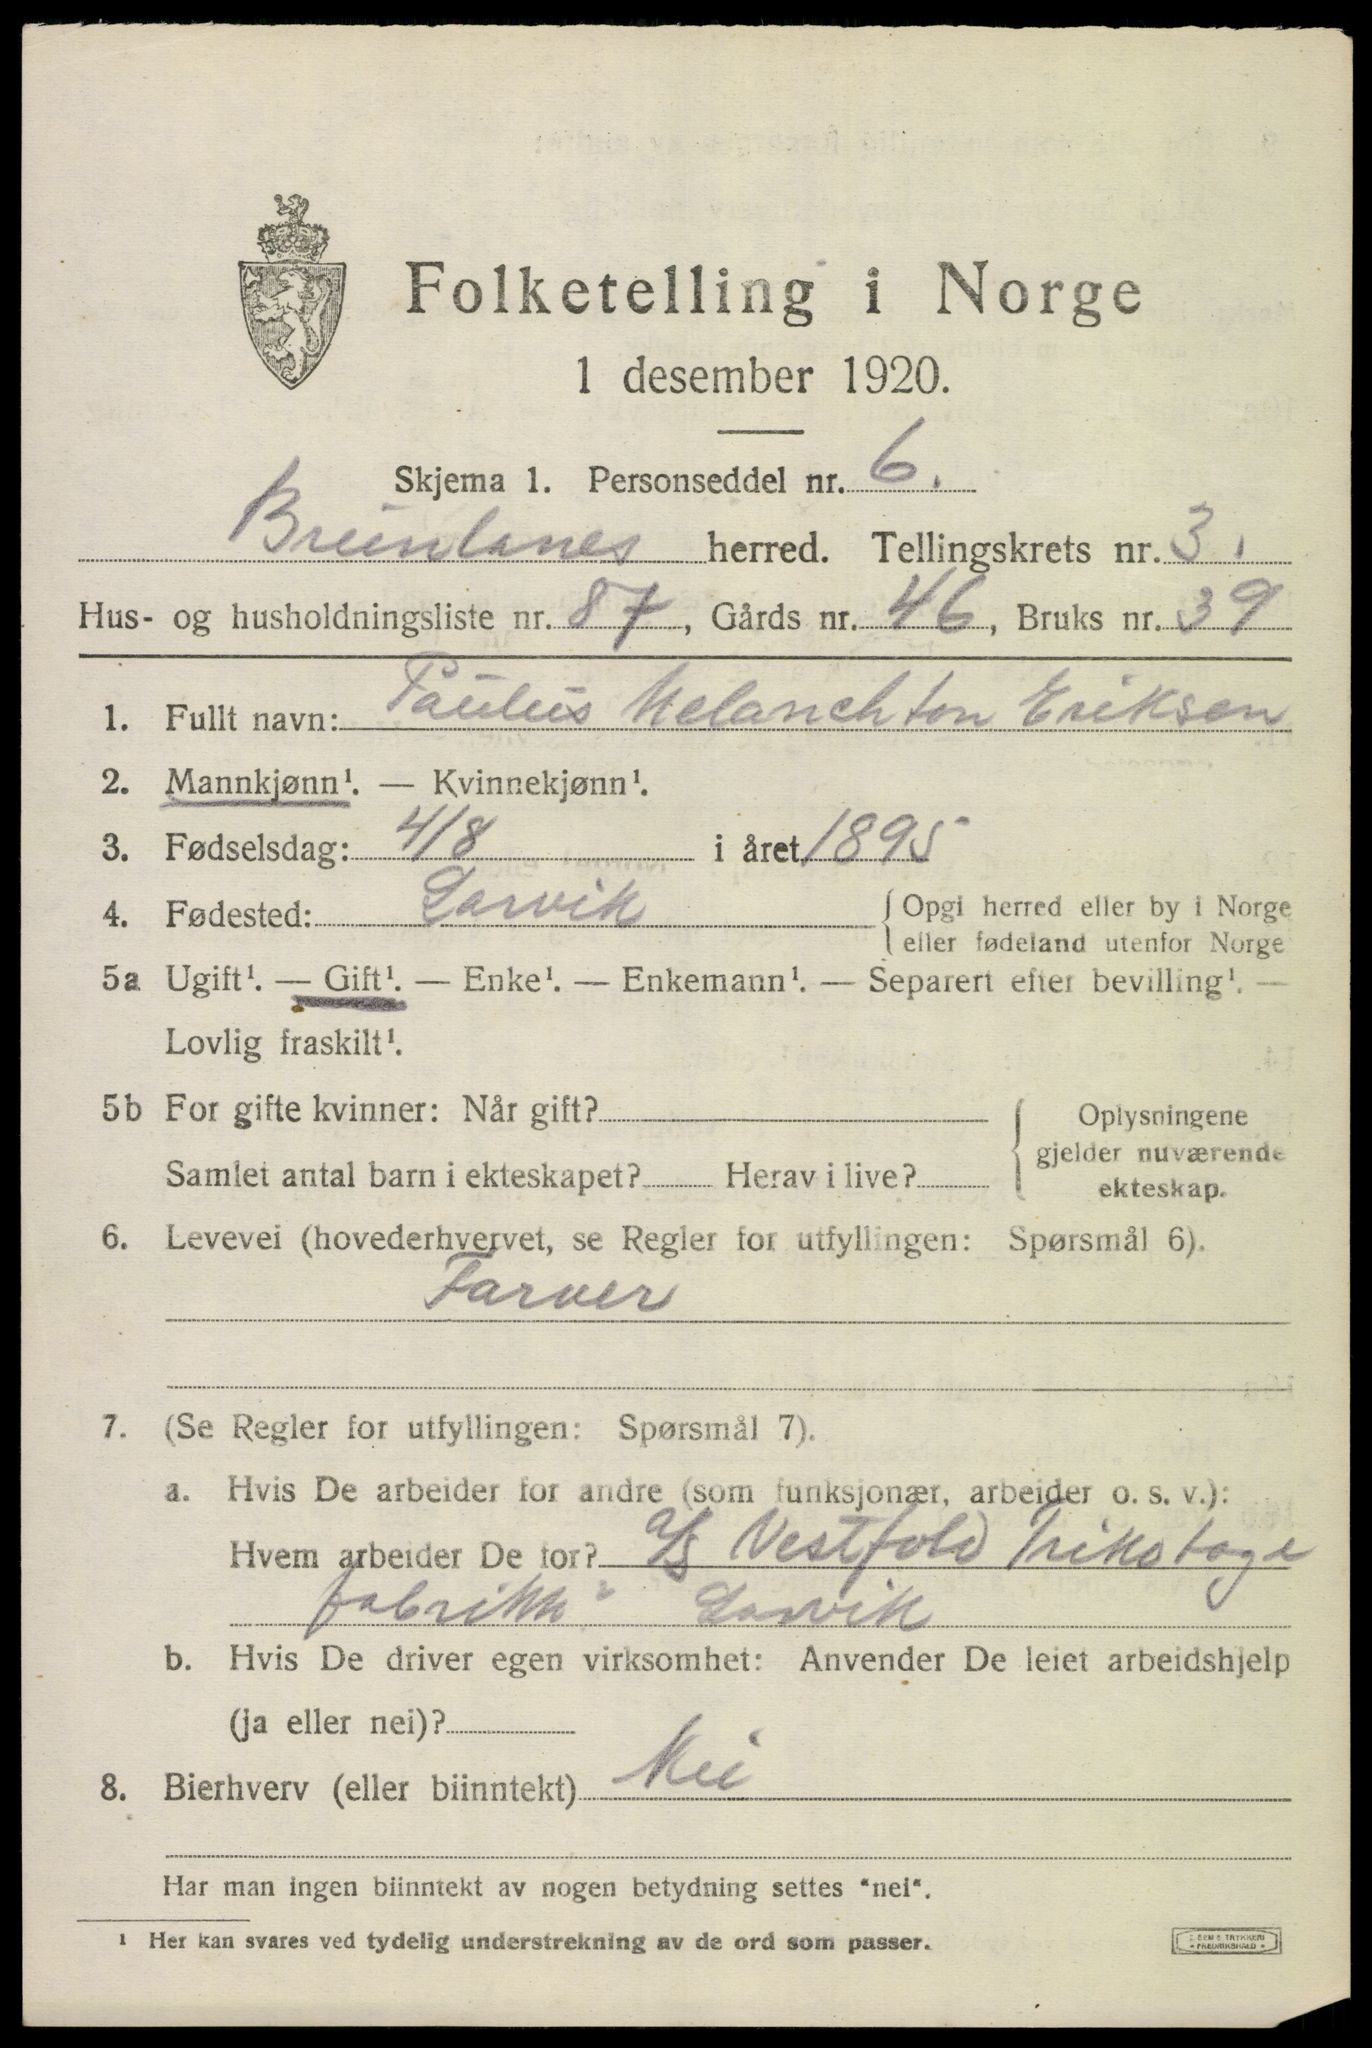 Folketelling i Norge
1 desember 1920.
Skjema 1. Personseddel nr. 6.
Brunlanes herred. Tellingskrets nr. 3.
Hus- og husholdningsliste nr. 87, Gårds nr. 46, Bruks nr. 39
1. Fullt navn: Paulus Melanchton Eriksen
2. Mannkjønn¹. — Kvinnekjønn¹.
3. Fødselsdag: 4/8 i året 1895
4. Fødested: Larvik { Opgi herred eller by i Norge
eller fødeland utenfor Norge
5a Ugift¹. — Gift¹. — Enke¹. — Enkemann¹. — Separert efter bevilling¹. —
Lovlig fraskilt¹.
5b For gifte kvinner: Når gift? { Oplysningene
gjelder nuværende
Samlet antal barn i ekteskapet? Herav i live? ekteskap.
6. Levevei (hovederhvervet, se Regler for utfyllingen: Spørsmål 6).
Farver
7. (Se Regler for utfyllingen: Spørsmål 7).
a. Hvis De arbeider for andre (som funksjonær, arbeider o. s. v.):
Hvem arbeider De for? A/S Vestfold Trikotage
fabrikk" Larvik
b. Hvis De driver egen virksomhet: Anvender De leiet arbeidshjelp
(ja eller nei)?
8. Bierhverv (eller biinntekt) Nei
Har man ingen biinntekt av nogen betydning settes "nei".
¹ Her kan svares ved tydelig understrekning av de ord som passer.